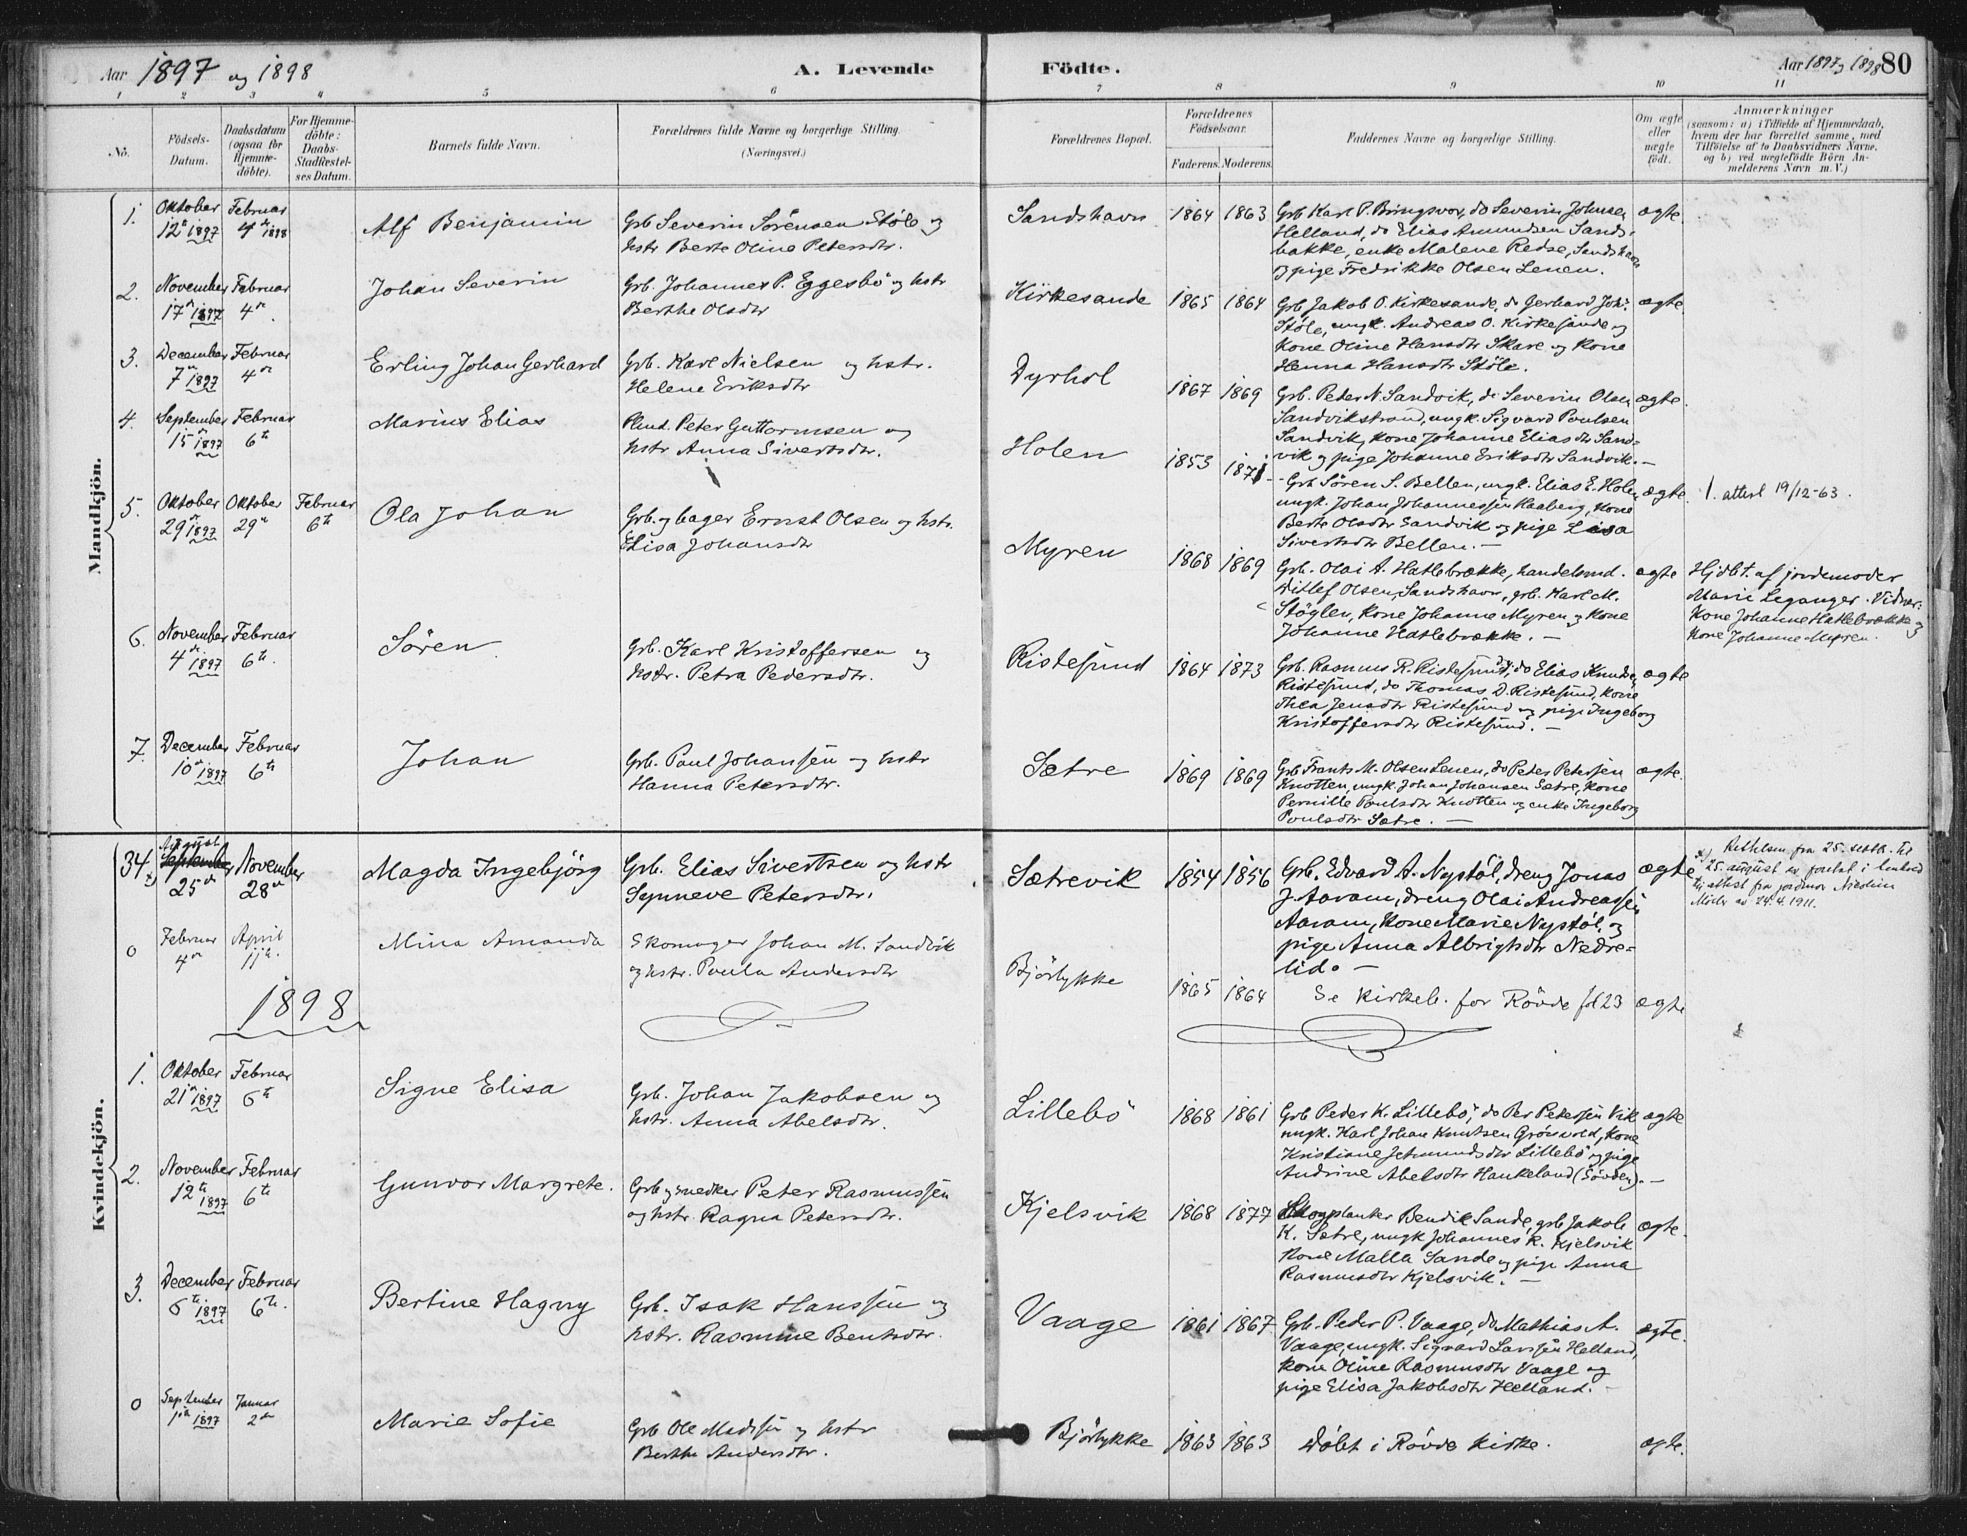 Aar 1897 og 1898
A. Levende
Födte.
Aar 1897 og 1898 80
1 2 3 4 5 6 7 8 9 10 11
No.
Födsels-
Datum.
Daabsdatum
(ogsaa for
Hjemme-
döbte).
For Hjemme-
döbte:
Daabs-
Stadfæstel-
ses Datum.
Barnets fulde Navn.
Forældrenes fulde Navne og borgerlige Stilling.
(Næringsvei.)
Forældrenes Bopæl.
Forældrenes
Födselsaar.
Faderens. Moderens.
Faddernes Navne og borgerlige Stilling.
Om ægte
eller
uægte
födt.
Anmærkninger
(saasom: a) i Tilfælde af Hjemmedaab,
hvem der har forrettet samme, med
Tilföielse af to Daabsvidners Navne,
og b) ved uægtefödte Börn An-
melderens Navn m. V.)
Mandkjön.
1. Oktober 12te 1897 Februar 4de 1898 Alf Benjamin
Grb Severin Sörensen Stöle og
hstr Berte Oline Petersdtr.
Sandshavn 1864 1863
Grb Karl P. Bringsvor, do Severin Johnsen
Helland, do Elias Amundsen Sands-
bakke, enke Malene Redse, Sandshavn
og pige Fredrikke Olsen Lenen.
ægte
2. November 17de 1897 Februar 4de Johan Severin
Grb. Johannes P. Eggesbö og hstr
Berthe Olsdtr
Kirkesande 1865 1864
Grb Jakob O. Kirkesande, do Gerhard Joh:
Stöle, ungk. Andreas O. Kirkesande og
Kone Oline Hansdtr Skare og Kone
Hanna Hansdtr Stöle.
ægte
3. December 7de 1897 Februar 4de Erling Johan Gerhard
Grb. Karl Nielsen og hstr.
Helene Eriksdtr
Dyrhol 1867 1869
Grb. Peter N. Sandvik, do Severin Olsen
Sandvikstrand, ungk. Sigvard Poulsen
Sandvik, Kone Johanne Eliasdtr Sand-
vik og pige Johanne Eriksdtr Sandvik. —
ægte.
4. September 15de 1897 Februar 6te Marius Elias
Peter Guttormsen og
hstr Anna Sivertsdtr.
Holen 1853 1871
Grb Sören S. Bellen, ungk. Elias E. Holen
ungk. Johan Johannessen Haaberg, Kone
Berte Olsdtr Sandvik og pige Lisa
Sivertsdtr Bellen. —
ægte. 1. attest 19/12-63.
5. Oktober 29de 1897 Oktober 29de Februar 6te Ola Johan
Grb. og bager Ernst Olsen og hstr.
Elisa Johansdtr
Myren 1868 1869
Grb. Olai A. Hatlebrække, handelsmd.
Ditlef Olsen, Sandshavn, grb. Karl M.
Stöylen, Kone Johanne Myren og Kone
Johanne Hatlebrække. —
ægte
Hjdbt. af jordemoder
Marie Leganger. Vidner:
Kone Johanne Hatlebrække og
Kone Johanne Myren.
6. November 4de 1897 Februar 6te. Sören
Grb. Karl Kristoffersen og
hstr. Petra Pedersdtr.
Ristesund 1864 1873
Grb. Rasmus R. Ristesund, do Elias Knuds.
Ristesund, do Thomas D. Ristesund, Kone
Thea Jensdtr Ristesund og pige Ingeborg
Kristoffersdtr Ristesund. —
ægte
7. December 10de 1897 Februar 6te Johan
Grb. Paul Johansen og hstr
Hanna Petersdtr.
Sætre 1869 1869
Grb Frants M. Olsen Lenen, do Peter Petersen
Knotten, ungk. Johan Johansen Sætre, Kone
Pernille Poulsdtr Knotten og enke Ingeborg
Poulsdtr Sætre. —
ægte.
Kvindekjön.
34. x) August September 25de November 28de Magda Ingebjörg
Grb. Elias Sivertsen og hstr
Synneve Petersdtr.
Sætrevik 1854 1856
Grb. Edvard A. Nystöl, dreng Jonas
J. Aaram, dreng Olai Andreassen
Aaram, Kone Marie Nystöl, og
pige Anna Albrigtsdtr Nedre-
lid. —
ægte
x) Rettelsen fra 25. septb. til
25. august er foretat i henhold
til attest fra jordmor Nicoline
av 24.4.1911.
0 Februar 4de April 11te. Mina Amanda
Skomager Johan M. Sandvik
og hstr. Paula Andersdtr
Björlykke 1865 1864
Se Kirkeb. for Rövde fol 23 ægte
1898
1. Oktober 21de 1897 Februar 6te Signe Elisa
Grb. Johan Jakobsen og
hstr. Anna Abelsdtr.
Lillebö 1868 1861
Grb Peder K. Lillebö, do Per Petersen Vik
ungk. Karl Johan Knutsen Grönvold, Kone
Kristiane Jetmundsdtr Lillebö og pige
Andrine Abelsdtr Hankeland (Sövden). —
ægte
2. November 12te 1897 Februar 6te Gunvor Margrete.
Grb og snedker Peter Rasmussen
og hstr. Ragna Petersdtr.
Kjelsvik 1868 1877
Skogplanter Bendik Sande, grb Jakob
K. Sætre, ungk Johannes R. Kjelsvik
Kone Malla Sande og pige Anna
Rasmusdtr Kjelsvik. —
ægte.
3. December 6te. 1897 Februar 6te. Bertine Hagny
Grb. Isak Hanssen og
hstr. Rasmine Bentsdtr.
Vaage 1861 1867
Grb. Peder P. Vaage, do Mathias A.
Vaage, ungk. Sigvard Larssen Helland,
Kone Oline Rasmusdtr Vaage og
pige Elisa Jakobsdtr Helland. —
ægte.
0 September 10de 1897 Januar 2de Marie Sofie
Grb Ole Madssen og hstr
Berthe Andersdtr.
Bjørlykke 1863 1863 Döbt i Rövde Kirke. ægte.